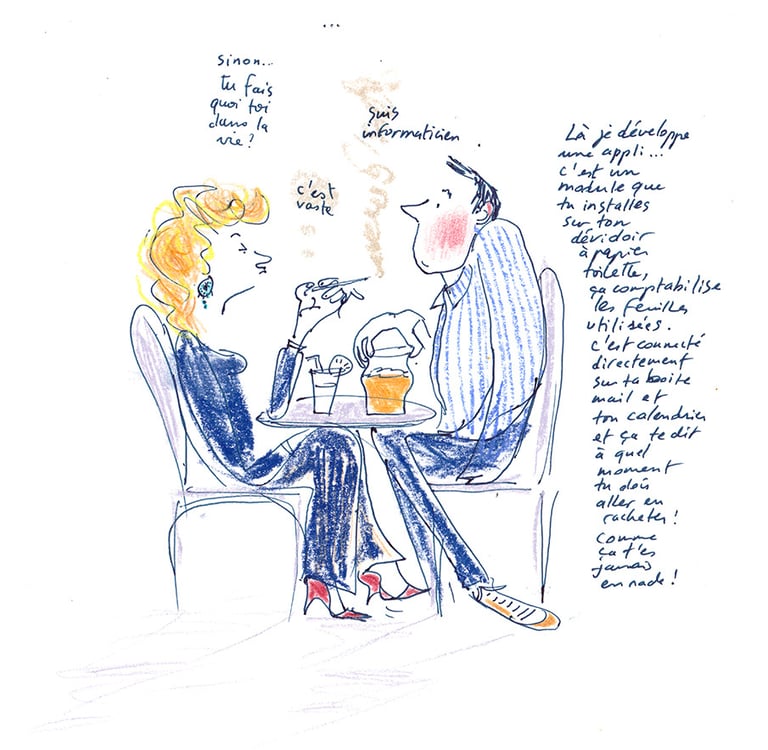 ...
sinon...
tu fais
quoi toi
dans la
vie?
suis
informaticien.
c'est
vaste
Là je développe
une appli...
c'est un
module que
tu installes
sur ton
dévidoir
à papier
toilette,
ça comptabilise
les feuilles
utilisées.
c'est connecté
directement
sur ta boite
mail et
ton calendrier
et ça te dit
à quel
moment
tu dois
aller en
racheter!
comme
ça t'es
jamais
en rade!